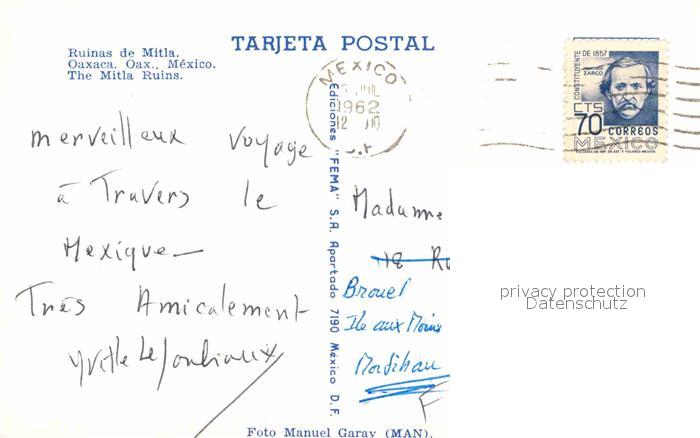 TARJETA POSTAL
Ruinas de Mitla.
Oaxaca, Oax., México.
The Mitla Ruins.
MEXICO
JUL
1962
12
CONSTITUYENTE DE 1857
FRANCISCO
ZARCO
CTS
70 CORREOS
MEXICO
merveilleux voyage
à Travers le
Mexique—
Très Amicalement
Ediciones "FEMA" S.A. Apartado 7190 México D.F.
Madame
Ile aux Moines
Morbihan
F
privacy protection
Datenschutz
Foto Manuel Garay (MAN).